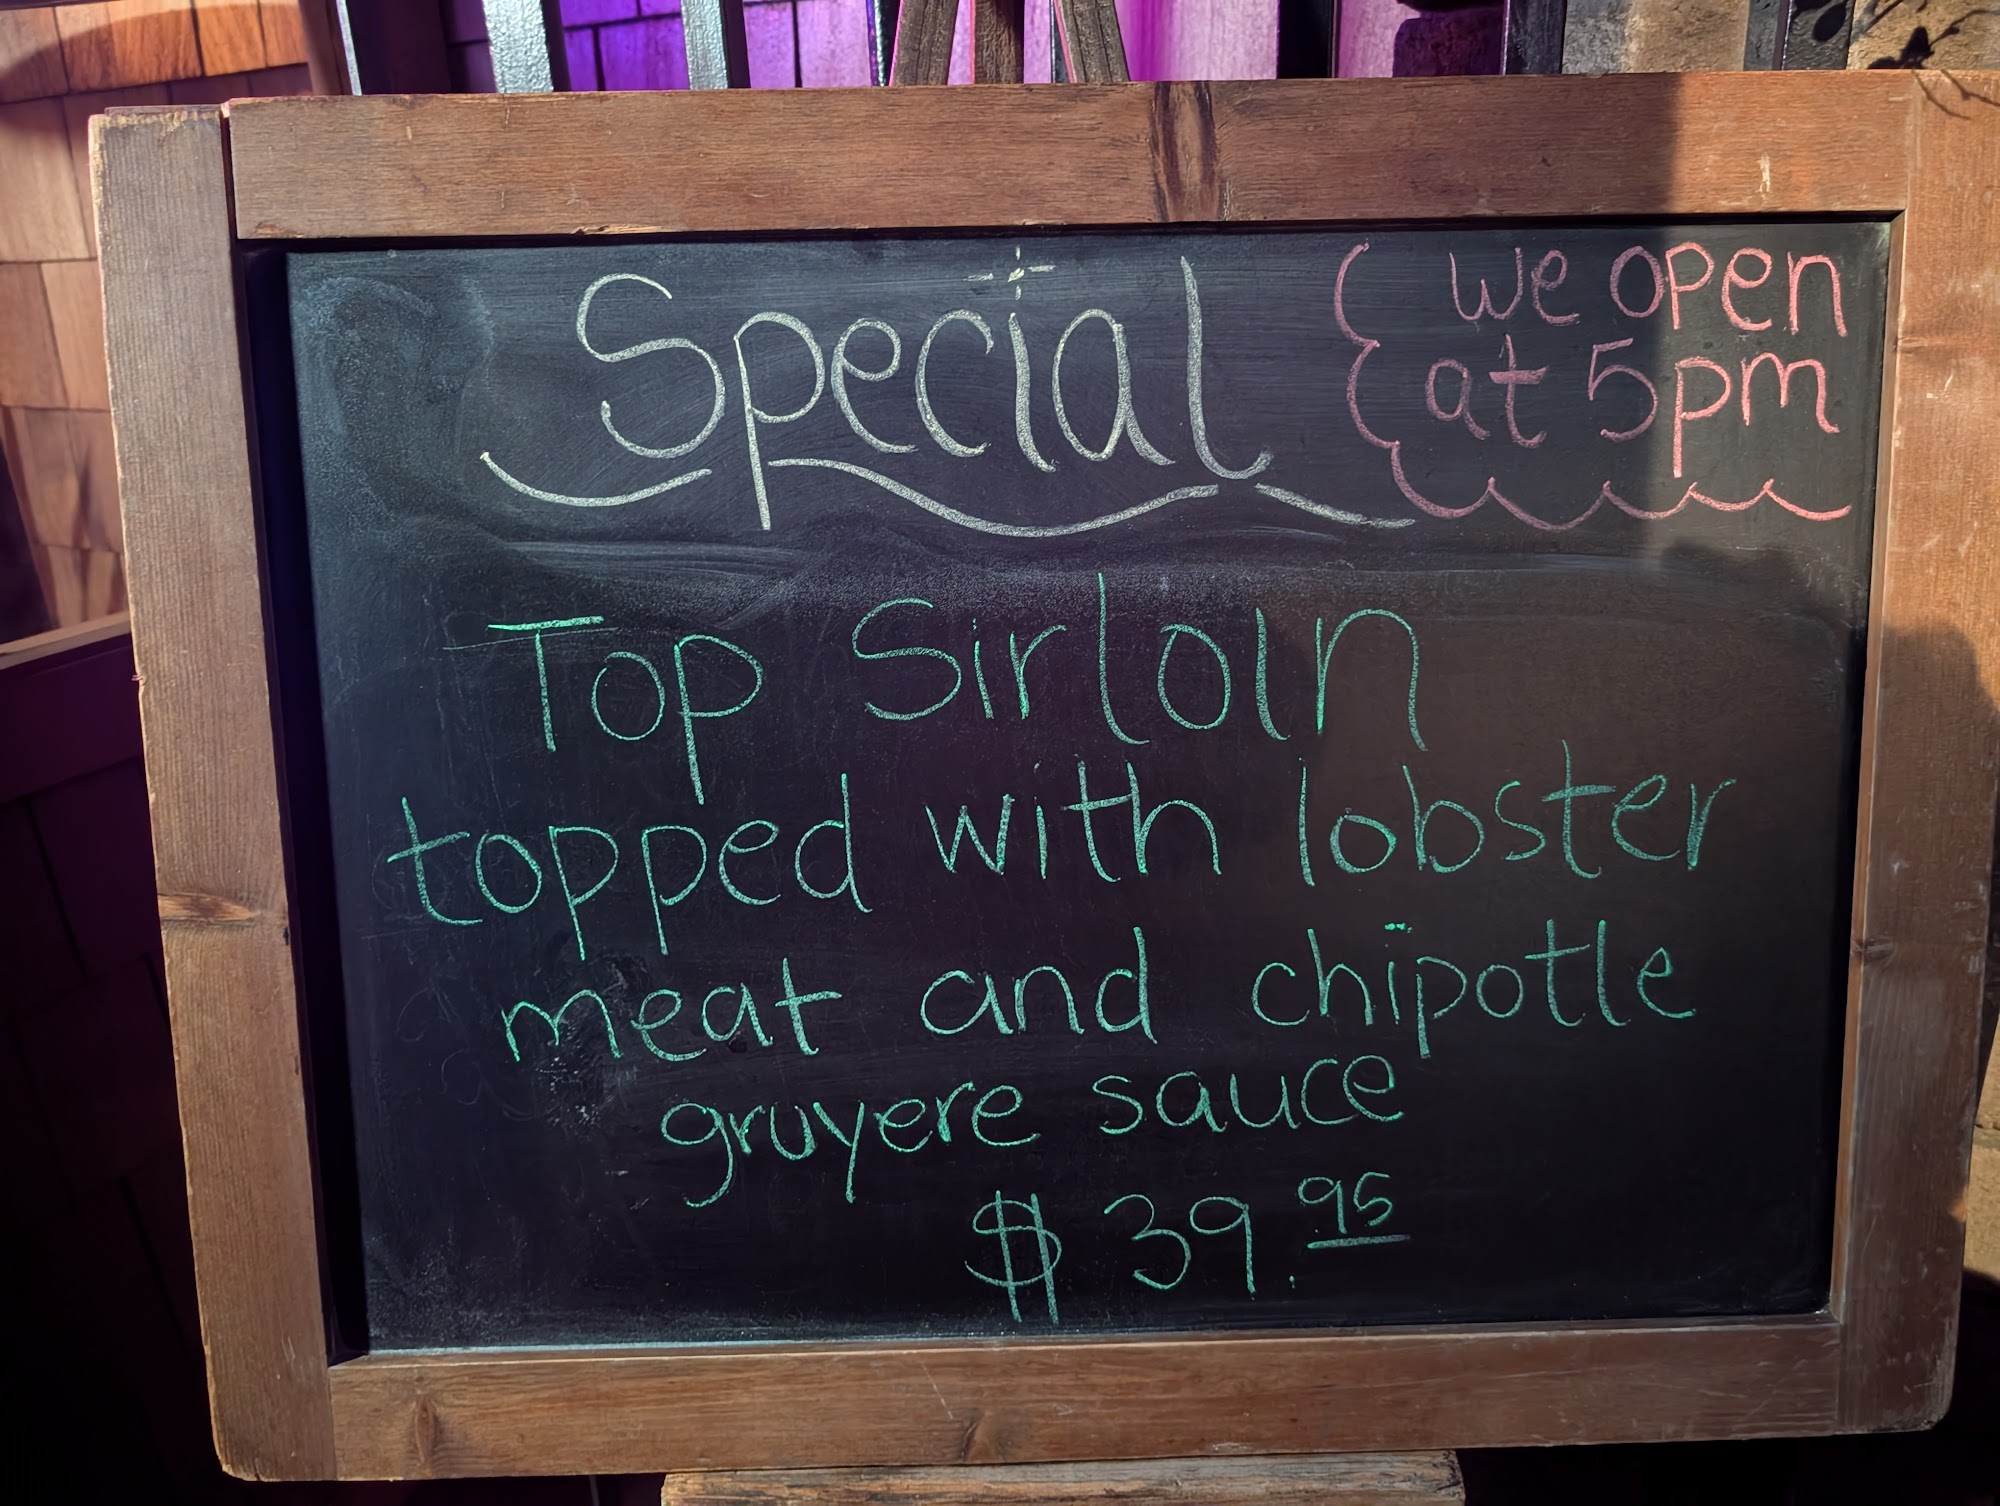 Special
we open
at 5pm
Top Sirloin
topped with lobster
meat and chipotle
gruyere sauce
$39.95